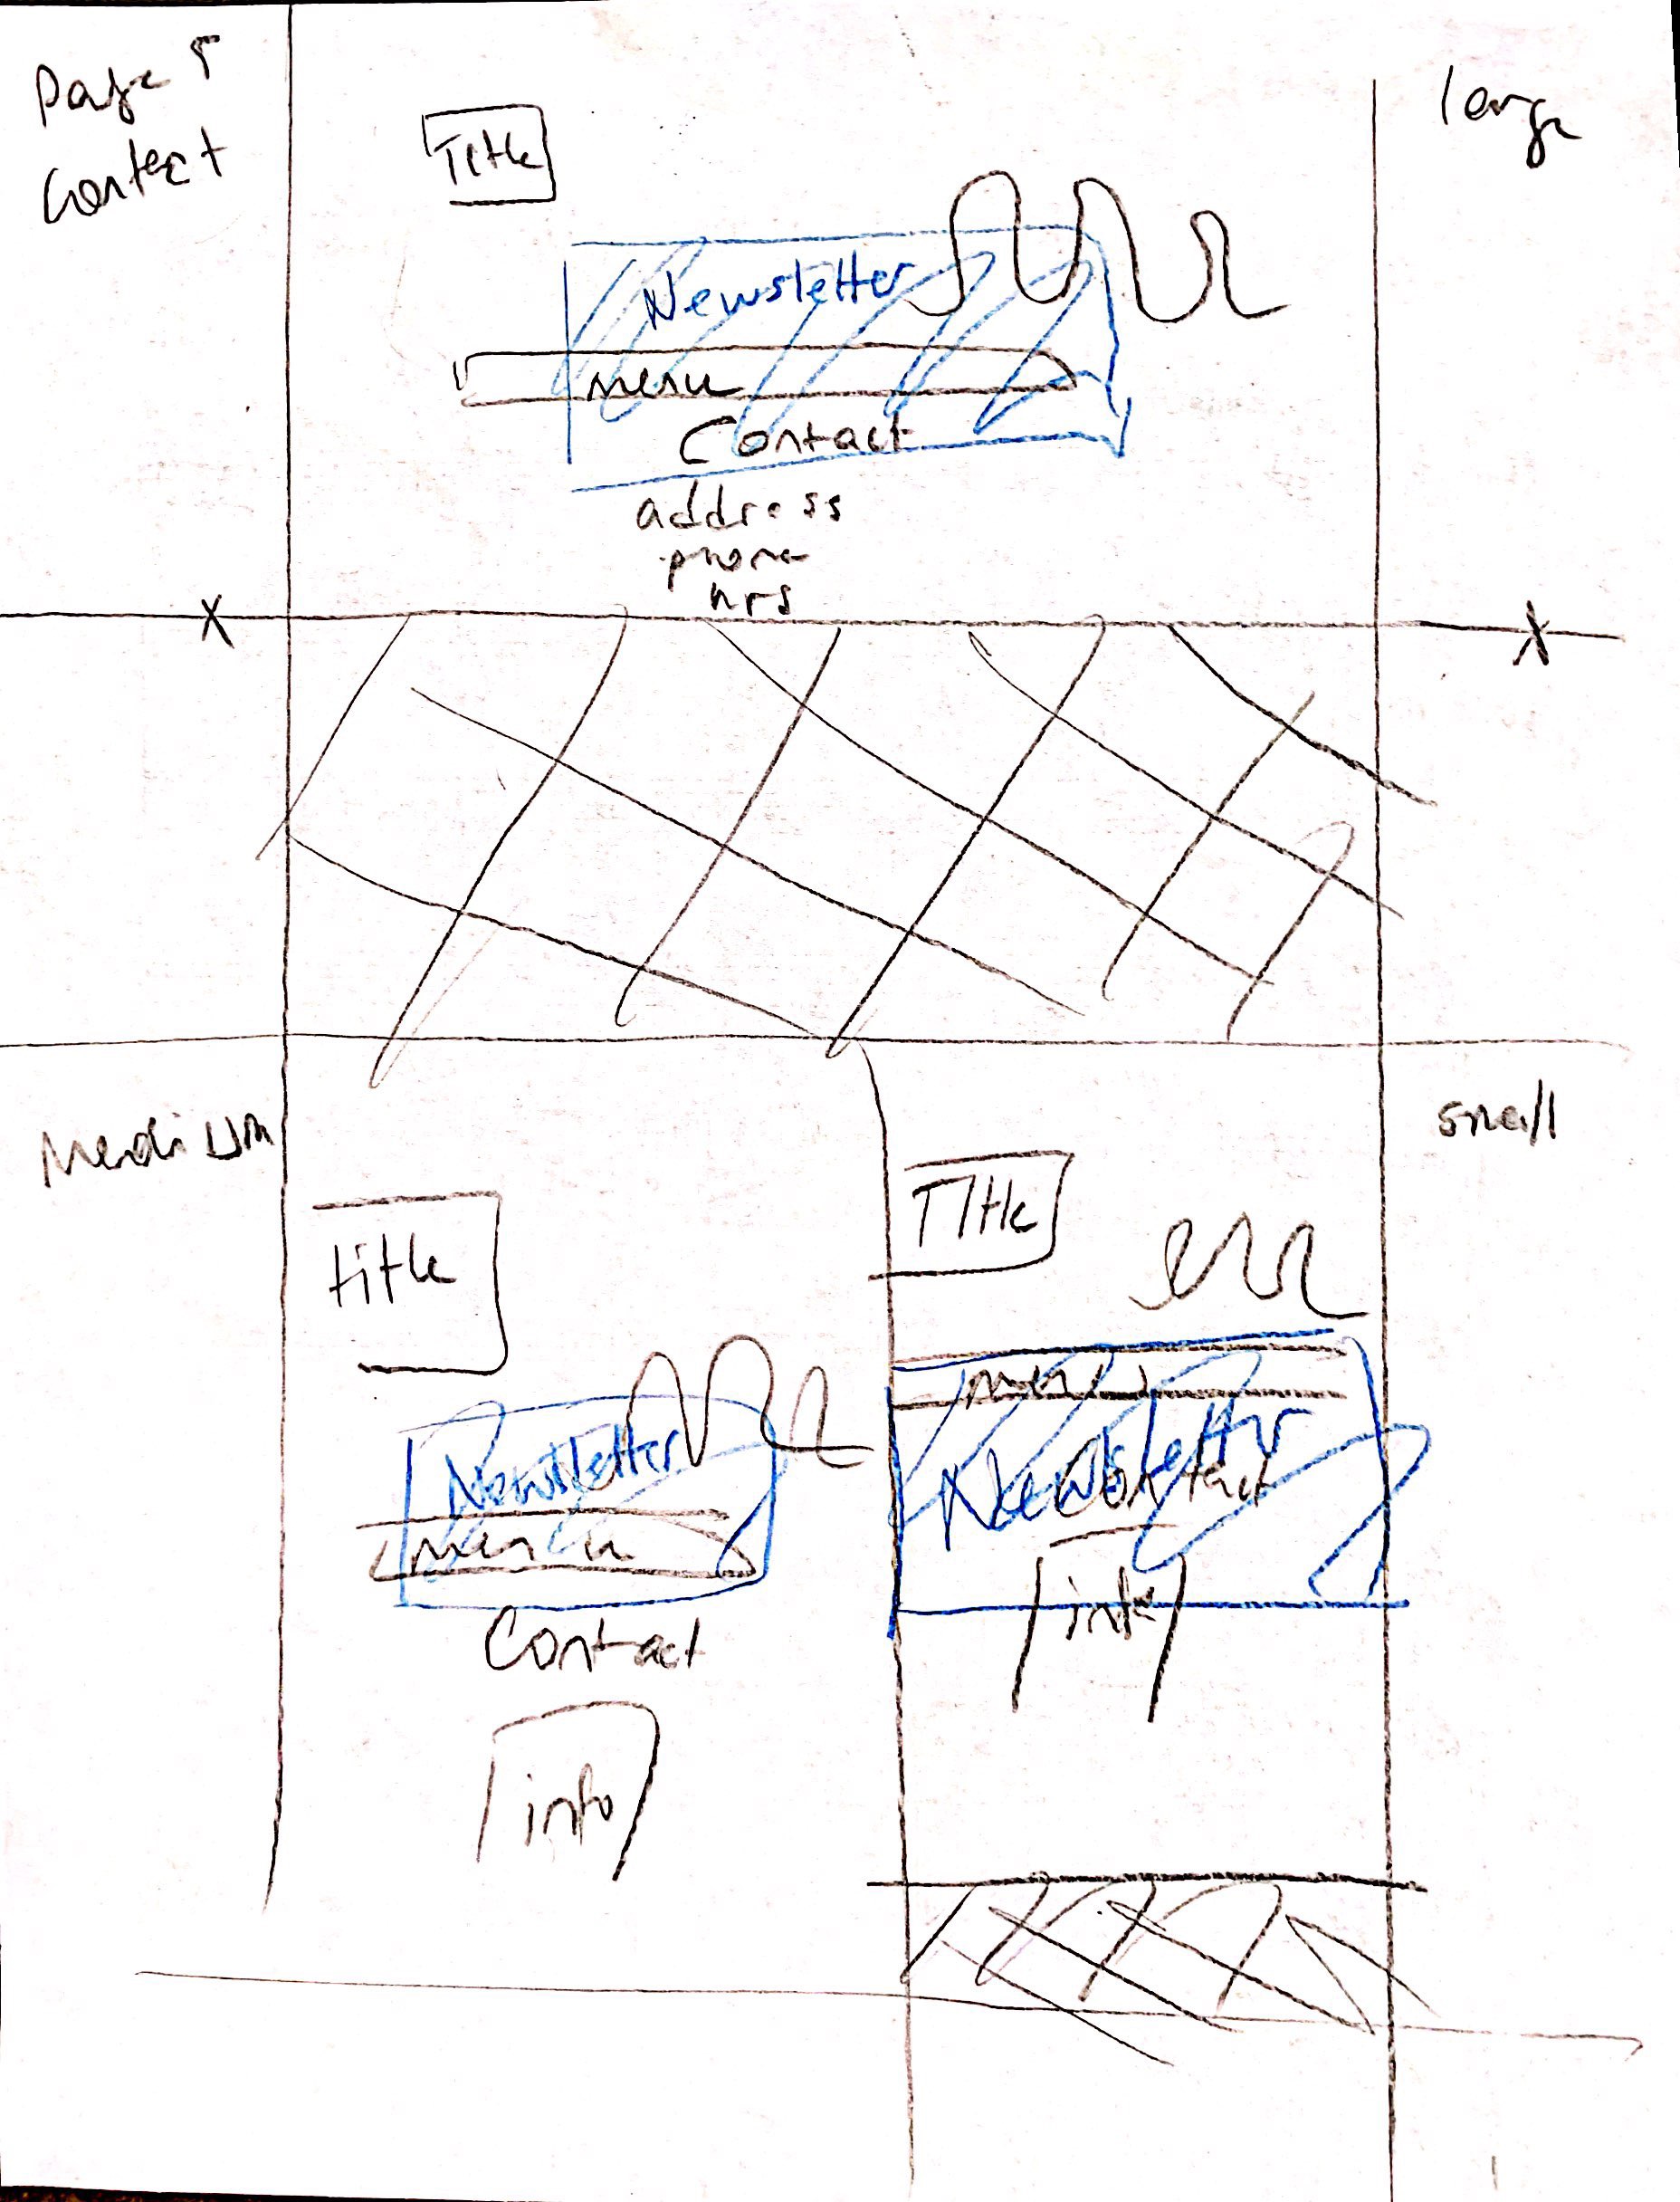 Page 5
Contact
large
Title
Newsletter
menu
Contact
address
phone
hrs
X
X
Medium
small
title
Newsletter
menu
Contact
info
Title
menu
Newsletter
Contact
info